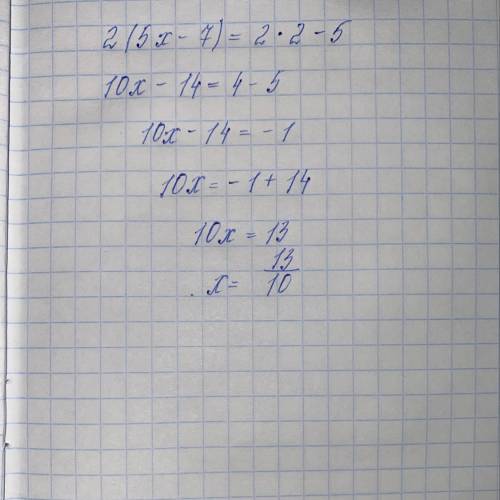 2(5x - 7) = 2 · 2 - 5
10x - 14 = 4 - 5
10x - 14 = - 1
10x = - 1 + 14
10x = 13
x = 13/10